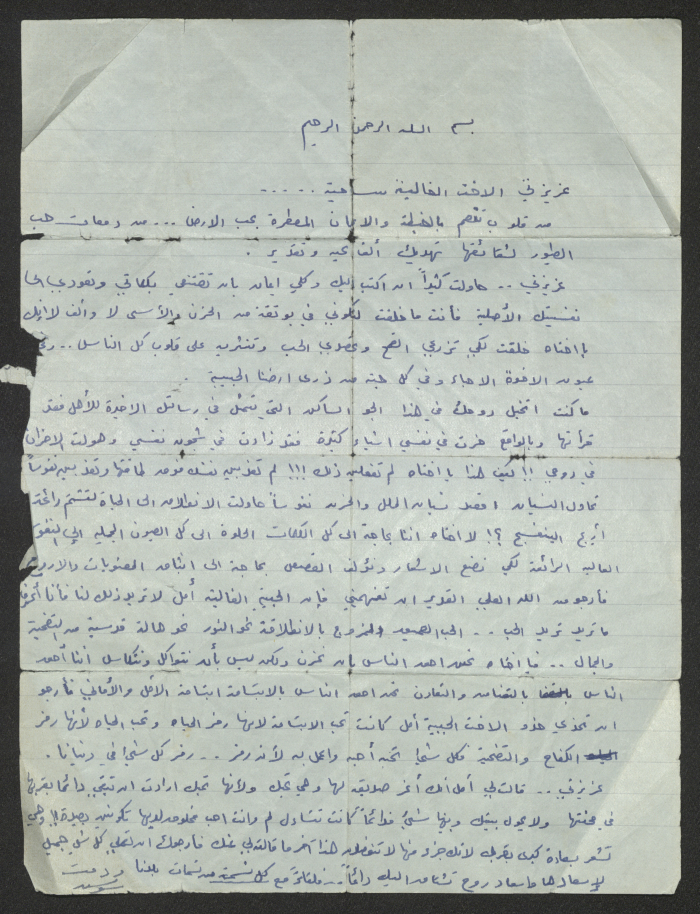 بسم الله الرحمن الرحيم
عزيزتي الاخت الغالية ساحية .....
من قلوب تفعم بالغبطة والايمان المعطرة بحب الارض ... من دمعات حب
الطيور لشقائقها تهديك ألف تحية وتقدير .
عزيزتي .. حاولت كثيراً ان اكتب اليك وكلي ايمان بان تقتنعي بكلماتي وتعودي الى
نفسيتك الأصلية فأنت ما خلقت لتكوني في بوتقة من الحزن والأسى لا وألف لا انك
يا اختاه خلقت لكي تزرعي القمح وتحصدي الحب وتنثريه على قلوب كل الناس ..
عيون الاخوة الاحباء وفي كل حبة من ذرى ارضنا الحبيبة .
ما كنت اتخيل روحك في هذا الجو الساكن التي يتمثل في رسائل الاخيرة للأهل فقد
قرأتها وبالواقع حزت في نفسي اشياء كثيرة فقد زادت في شجون نفسي وهولت الاحزان
في روحي !! كيف هذا يا اختاه لم تفعلين ذلك !!! لم تعذبين نفسك فوق طاقتها وتعذبين نفوساً
تحاول النسيان اقصد نسيان الملل والحزن نفوساً حاولت الانطلاق الى الحياة لتشتم رائحة
أريج البنفسج ؟! لا اختاه اننا بحاجة الى كل الكلمات الحلوة الى كل العيون الجميلة الى النفوس
العالية الرائعة لكي نضع الاشعار ونؤلف القصص بحاجة الى ابتسام المعنويات والارواح
فأرجو من الله العلي القدير ان تفهميني فإن الحبيبة الغالية أمل لا تريد ذلك لنا فأنا أعرف
ما تريد تريد الحب .. الحب الصمود الممزوج بالانطلاقة نحو النور نحو هالة قدسية من التضحية
والجمال .. فيا اختاه نحن احق الناس بان نحزن ولكن ليس بأن نتواكل ونتكاسل اننا أحق
الناس بالتضامن والتعاون نحن احق الناس بالابتسامة ابتسامة الأمل والأماني فأرجو
ان تحذي حذو الاخت الحبيبة أمل كانت تحب الابتسامة لانها رمز الحياه وتحب الحياه لأنها رمز
الكفاح والتضحية فكل شيئ تحبه أحبه واعمل به لأنه رمز .. رمز كل شيئ في دنيانا .
عزيزتي .. قالت لي أمل انك أعز صديقه لها وهي تحبك ولأنها تحبك ارادت ان تبقي دائماً بقربها
في محنتها ولا يحول بينك وبينها شيئ فدائماً كانت تتسائل لم وانت احب مخلوق لديها تكونين بعيدة !! وهي
تشعر بسعادة كبرى بقربك لانك جزء منها لا تنفصل هذا آخر ما قالته لي عنك فأرجوك ان تعملي كل شيئ جميل
لإسعادها واسعاد روح تشتاق اليك دائماً مع كل نسمة من نسمات بلدنا ودمت